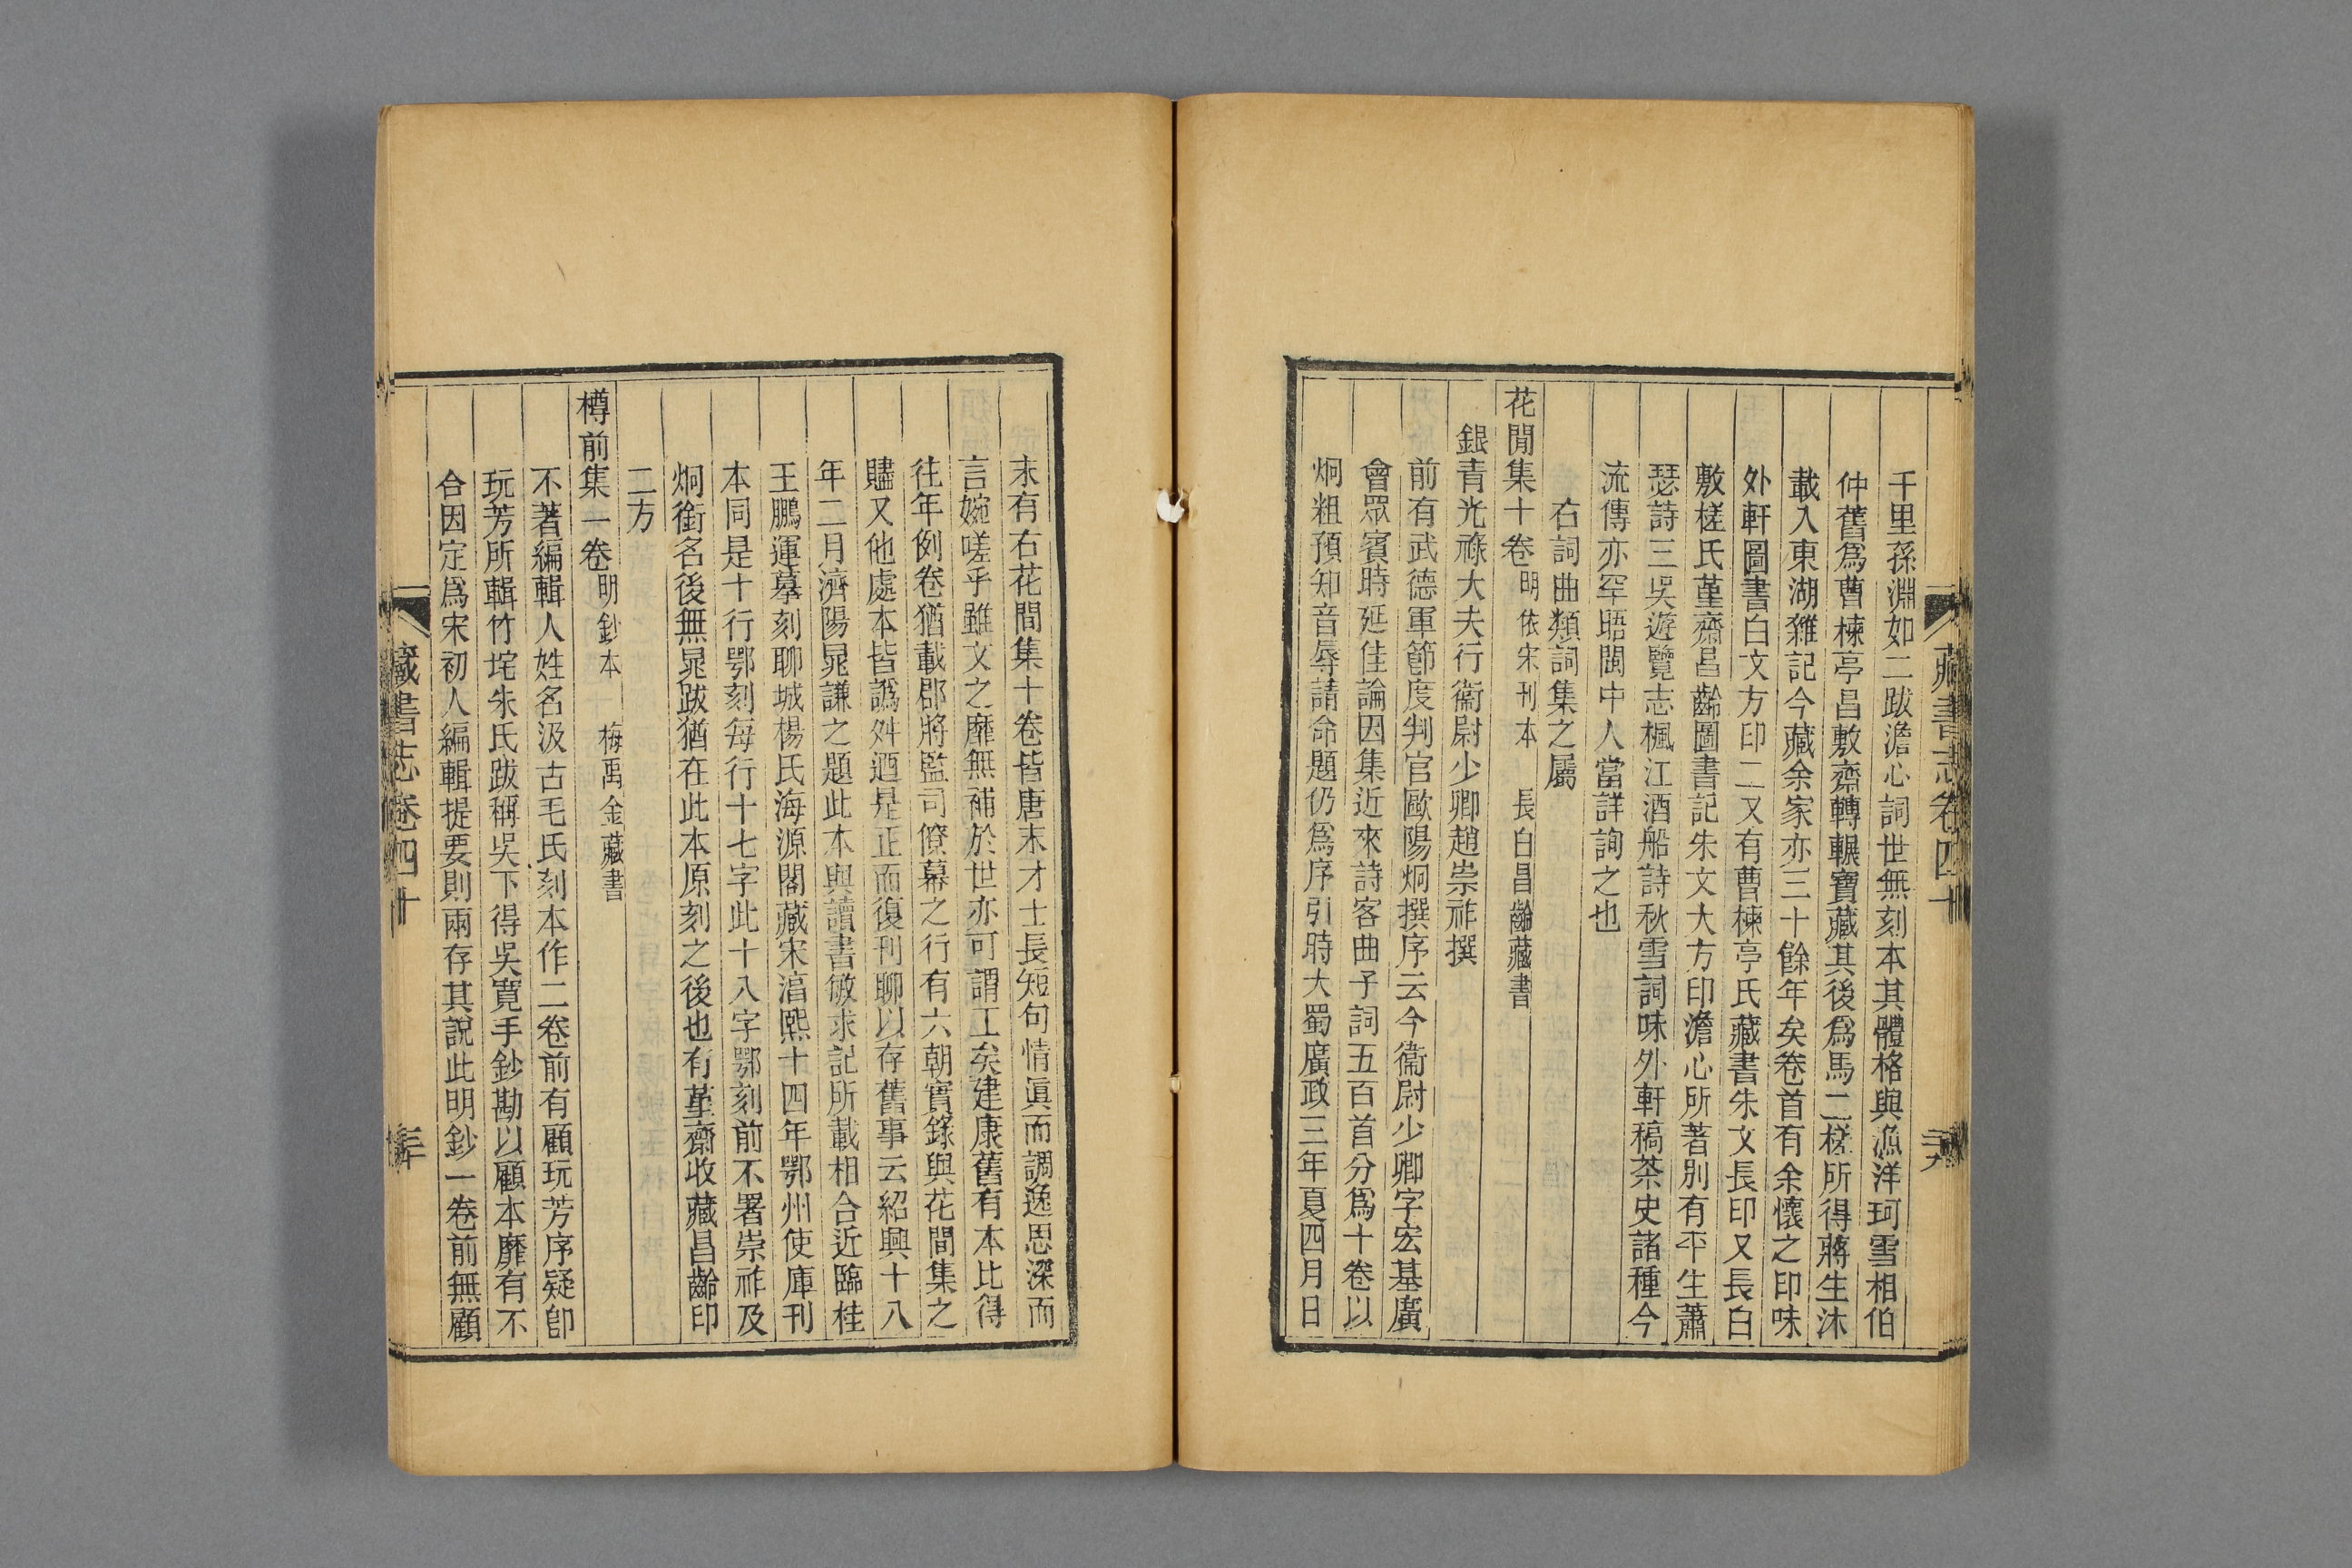 千里孫淵如二跋澹心詞世無刻本其體格與漁洋珂雪相伯
仲舊爲曹楝亭昌敷齋轉輾寶藏其後爲馬二槎所得蔣生沐
載入東湖雜記今藏余家亦三十餘年矣卷首有余懷之印味
外軒圖書白文方印二又有曹楝亭氏藏書朱文長印又長白
敷槎氏堇齋昌齡圖書記朱文大方印澹心所著別有平生蕭
瑟詩三吳遊覽志楓江酒船詩秋雪詞味外軒稿茶史諸種今
流傳亦罕晤閩中人當詳詢之也
右詞曲類詞集之屬
花閒集十卷 明依宋刊本 長白昌齡藏書
銀青光祿大夫行衞尉少卿趙崇祚撰
前有武德軍節度判官歐陽炯撰序云今衞尉少卿字宏基廣
會眾賓時延佳論因集近來詩客曲子詞五百首分爲十卷以
炯粗預知音辱請命題仍爲序引時大蜀廣政三年夏四月日
藏書志卷四十
末有右花間集十卷皆唐末才士長短句情眞而調逸思深而
言婉嗟乎雖文之靡無補於世亦可謂工矣建康舊有本比得
往年例卷猶載郡將監司僚幕之行有六朝實錄與花間集之
贐又他處本皆譌舛迺是正而復刊聊以存舊事云紹興十八
年二月濟陽晁謙之題此本與讀書敏求記所載相合近臨桂
王鵬運摹刻聊城楊氏海源閣藏宋湻熙十四年鄂州使庫刊
本同是十行鄂刻每行十七字此十八字鄂刻前不署崇祚及
炯銜名後無晁跋猶在此本原刻之後也有堇齋收藏昌齡印
二方
樽前集一卷 明鈔本 梅禹金藏書
不著編輯人姓名汲古毛氏刻本作二卷前有顧玩芳序疑卽
玩芳所輯竹垞朱氏跋稱吳下得吳寬手鈔勘以顧本靡有不
合因定爲宋初人編輯提要則兩存其說此明鈔一卷前無顧
藏書志卷四十